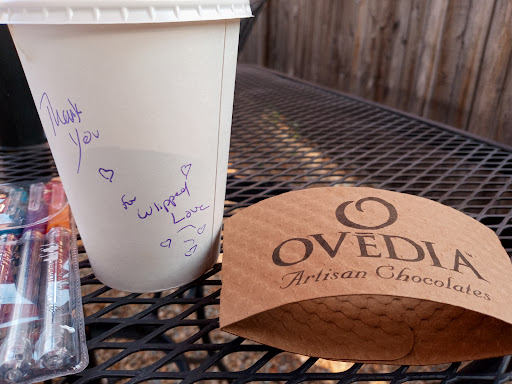 Thank
you
for
Whipped
Love
OVĒDIA
Artisan Chocolates